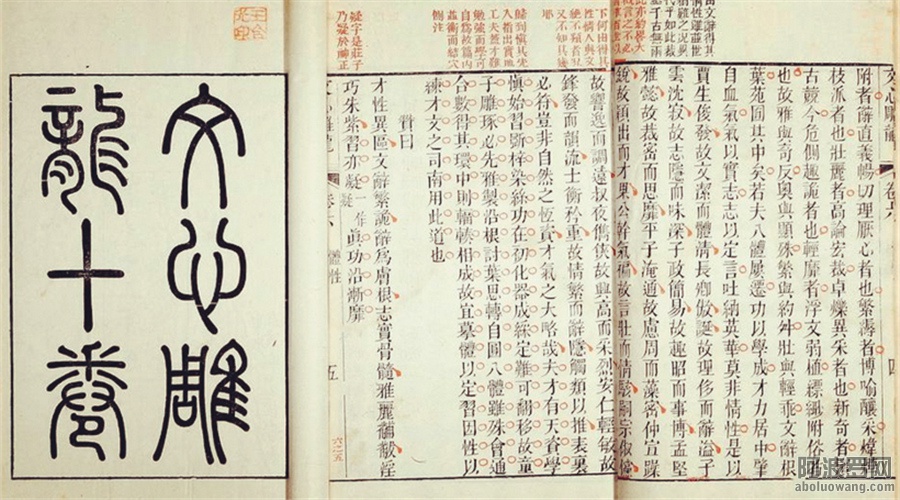 文心雕
龍十卷
文心雕龍 卷六 四
附者辭直義暢切理厭心者也繁縟者博喻釀采煒燁
枝派者也壯麗者高論宏裁卓爍異采者也新奇者
古競今危側趣詭者也輕靡者浮文弱植縹緲附俗者
也故雅與奇反奧與顯殊繁與約舛壯與輕乖文辭根
葉苑囿其中矣若夫八體屢遷功以學成才力居中肇
自血氣氣以實志志以定言吐納英華莫非情性是以
賈生俊發故文潔而體清長卿傲誕故理侈而辭溢子
雲沈寂故志隱而味深子政簡易故趣昭而事博孟堅
雅懿故裁密而思靡平子淹通故慮周而藻密仲宣躁
銳故穎出而才果公幹氣褊故言壯而情駭嗣宗俶儻
故響逸而調遠叔夜儁俠故興高而采烈安仁輕敏故
鋒發而韻流士衡矜重故情繁而辭隱觸類以推表裏
必符豈非自然之恆資才氣之大略哉夫才有天資學
慎始習斲梓染絲功在初化器成綵定難可翻移故童
子雕琢必先雅製沿根討葉思轉自圓八體雖殊會通
合數得其環中則輻輳相成故宜摹體以定習因性以
練才文之司南用此道也
贊曰
才性異區文辭繁詭辭為膚根志實骨髓雅麗黼黻淫
巧朱紫習亦凝疑一作真功沿漸靡
體性 五
六之五
疑字是莊子
乃疑於神正
阿波罗网
aboluowang.com